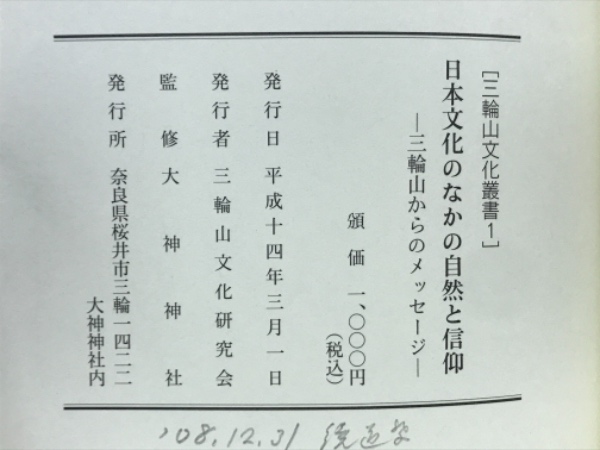 ［三輪山文化叢書1］
日本文化のなかの自然と信仰
―三輪山からのメッセージ―
頒価　一、〇〇〇円
（税込）
発行日　平成十四年三月一日
発行者　三輪山文化研究会
監修　大神神社
発行所　奈良県桜井市三輪一四二二
大神神社内
'08.12.31